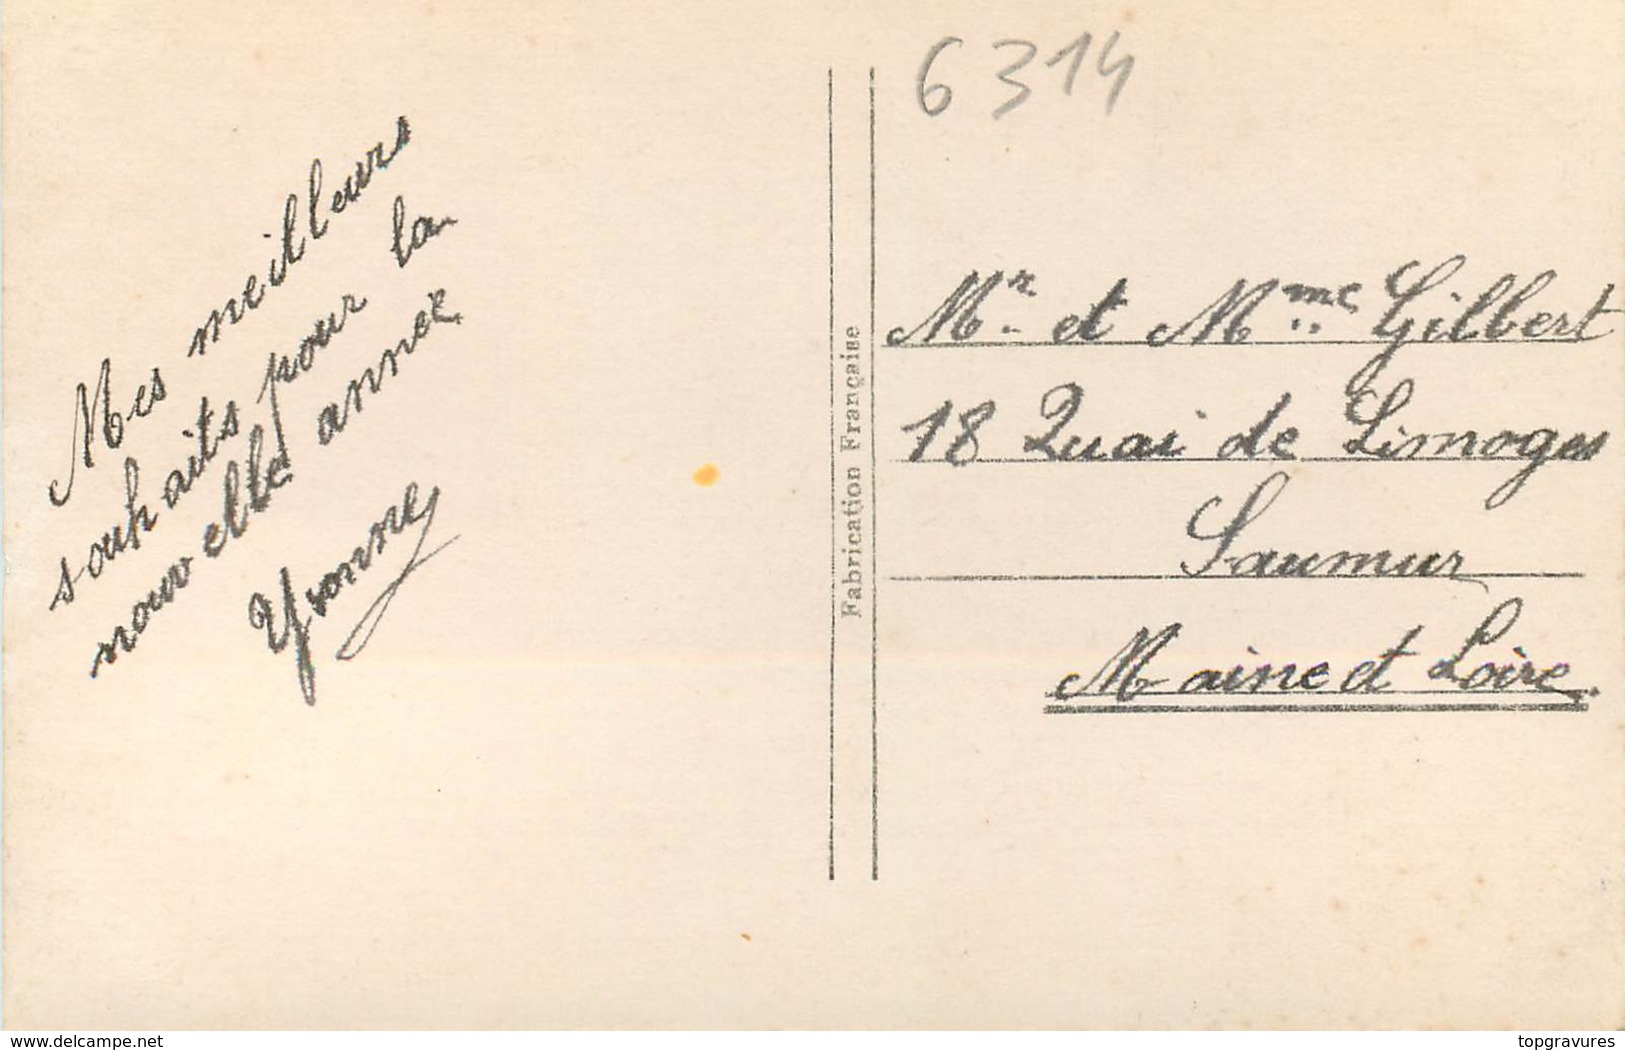 6314
Mes meilleurs
souhaits pour la
nouvelle année
Yvonne
Fabrication Française
Mr et Mme Gilbert
18 Quai de Limoges
Saumur
Maine et Loire.
www.delcampe.net
topgravures